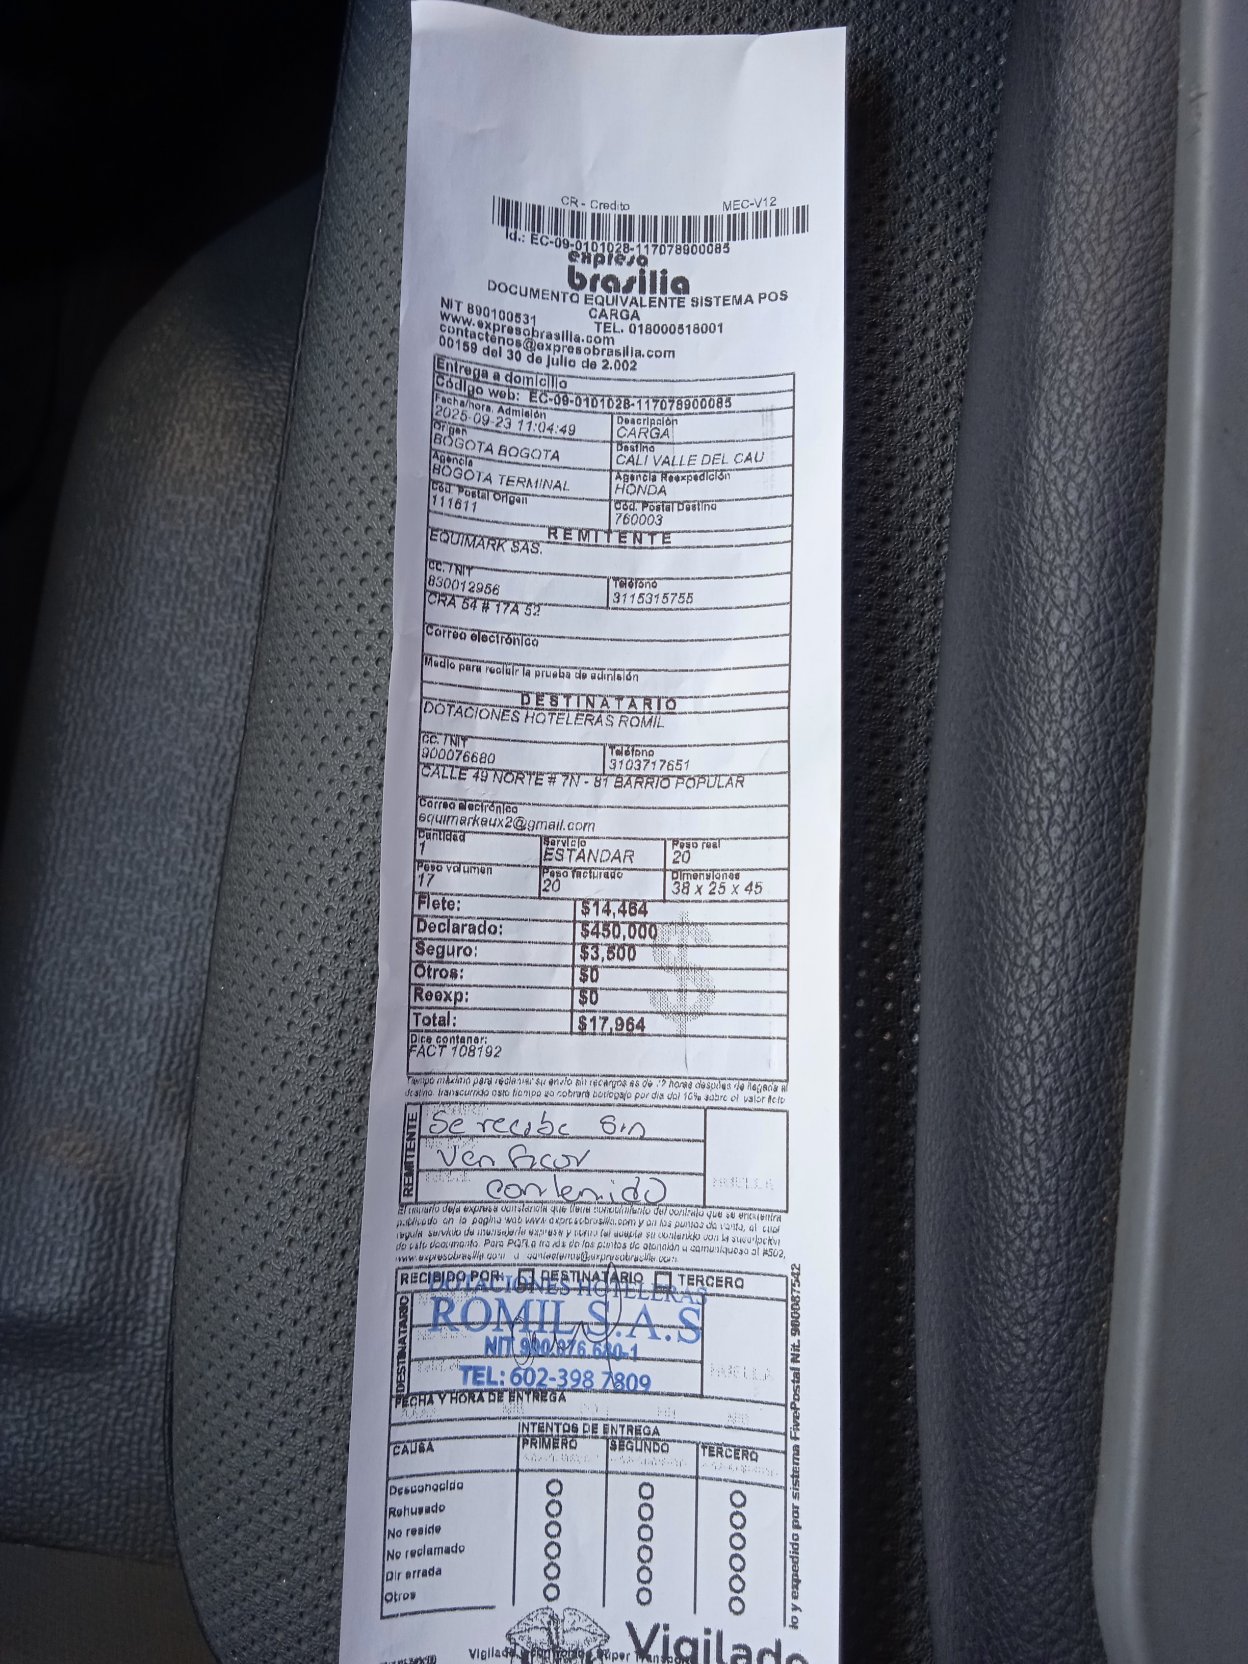 CR - Credito MEC-V12
Id.: EC-09-0101028-117078900085
expreso
brasilia
DOCUMENTO EQUIVALENTE SISTEMA POS
CARGA
NIT 890100531 TEL. 018000518001
www.expresobrasilia.com
contactenos@expresobrasilia.com
00159 del 30 de julio de 2.002
Entrega a domicilio
Código web: EC-09-0101028-117078900085
Fecha/hora Admisión Descripción
2025-09-23 11:04:49 CARGA
Origen Destino
BOGOTA BOGOTA CALI VALLE DEL CAU
Agencia Agencia Reexpedición
BOGOTA TERMINAL HONDA
Cód. Postal Origen Cód. Postal Destino
111611 760003
REMITENTE
EQUIMARK SAS.
CC. / NIT Teléfono
830012956 3115315755
CRA 54 # 17A 52
Correo electrónico
Medio para recibir la prueba de admisión
DESTINATARIO
DOTACIONES HOTELERAS ROMIL
CC. / NIT Teléfono
900076680 3103717651
CALLE 49 NORTE # 7N - 81 BARRIO POPULAR
Correo electrónico
equimarkaux2@gmail.com
Cantidad Servicio Peso real
1 ESTANDAR 20
Peso volumen Peso facturado Dimensiones
17 20 38 x 25 x 45
Flete: $14,464
Declarado: $450,000
Seguro: $3,500
Otros: $0
Reexp: $0
Total: $17,964
Dice contener:
FACT 108192
Tiempo máximo para reclamar su envío sin recargos es de 72 horas después de llegada al
destino, transcurrido este tiempo se cobrará bodegaje por día del 10% sobre el valor flete
REMITENTE
Se recibe sin
Verificar
contenido
HUELLA
El usuario deja expresa constancia que tiene conocimiento del contrato que se encuentra
publicado en la pagina web www.expresobrasilia.com y en los puntos de venta, el cual
regula servicio de mensajería expresa y como tal acepta su contenido con la suscripción
de este documento. Para PQR a través de los puntos de atención o comuníquese al #502,
www.expresobrasilia.com o contactenos@expresobrasilia.com
RECIBIDO POR: DESTINATARIO TERCERO
DESTINATARIO
DOTACIONES HOTELERAS
ROMIL S.A.S
NIT 900.076.680-1
TEL: 602-398 7809
HUELLA
FECHA Y HORA DE ENTREGA
INTENTOS DE ENTREGA
CAUSA PRIMERO SEGUNDO TERCERO
Desconocido
Rehusado
No reside
No reclamado
Dir errada
Otros
io y expedido por sistema FivePostal Nit. 900087542
Vigilado